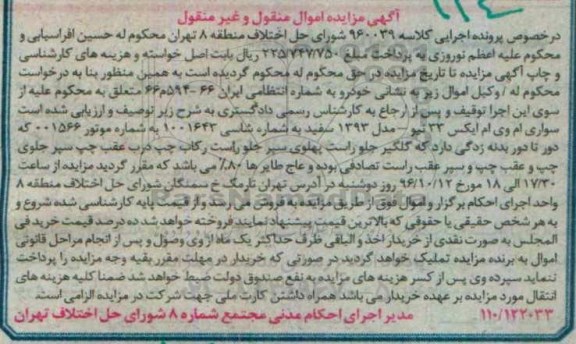 ۱۱۴
آگهی مزایده اموال منقول و غیر منقول
درخصوص پرونده اجرایی کلاسه ۹۶۰۰۳۹ شورای حل اختلاف منطقه ۸ تهران محکوم له حسین افراسیابی و
محکوم علیه اعظم نوروزی به پرداخت مبلغ ۲۳۵/۷۴۷/۷۵۰ ریال بابت اصل خواسته و هزینه های کارشناسی
و چاپ آگهی مزایده تا تاریخ مزایده در حق محکوم له محکوم گردیده است به همین منظور بنا به درخواست
محکوم له / وکیل اموال زیر به نشانی خودرو به شماره انتظامی ایران ۶۶ -۵۹۴م۶۶ متعلق به محکوم علیه از
سوی این اجرا توقیف و پس از ارجاع به کارشناس رسمی دادگستری به شرح زیر توصیف و ارزیابی شده است
سواری ام وی ام ایکس ۳۳ تیو - مدل ۱۳۹۳ سفید به شماره شاسی ۱۰۰۱۶۴۳ به شماره موتور ۰۰۱۵۶۶ که
دور تا دور بدنه زدگی دارد که گلگیر جلو راست پهلوی سپر جلو راست رکاب چپ درب عقب چپ سپر جلوی
چپ و عقب چپ و سپر عقب راست تصادفی بوده و عاج طایر ها ۸۰٪ می باشد که مقرر گردید مزایده از ساعت
۱۷/۳۰ الی ۱۸ مورخ ۹۶/۱۰/۱۲ روز دوشنبه در آدرس تهران نارمک خ سمنگان شورای حل اختلاف منطقه ۸
واحد اجرای احکام برگزار و اموال فوق از طریق مزایده به فروش می رسد و از قیمت پایه کارشناسی شده شروع و
به هر شخص حقیقی یا حقوقی که بالاترین قیمت پیشنهاد نمایند فروخته خواهد شد ده درصد قیمت خرید فی
المجلس به صورت نقدی از خریدار اخذ و الباقی ظرف حداکثر یک ماه از وی وصول و پس از انجام مراحل قانونی
اموال به برنده مزایده تملیک خواهد گردید در صورتی که خریدار در مهلت مقرر بقیه وجه مزایده را پرداخت
ننماید سپرده وی پس از کسر هزینه های مزایده به نفع صندوق دولت ضبط خواهد شد ضمنا کلیه هزینه های
انتقال مورد مزایده بر عهده خریدار می باشد همراه داشتن کارت ملی جهت شرکت در مزایده الزامی است.
۱۱۰/۱۲۲۰۳۳ مدیر اجرای احکام مدنی مجتمع شماره ۸ شورای حل اختلاف تهران